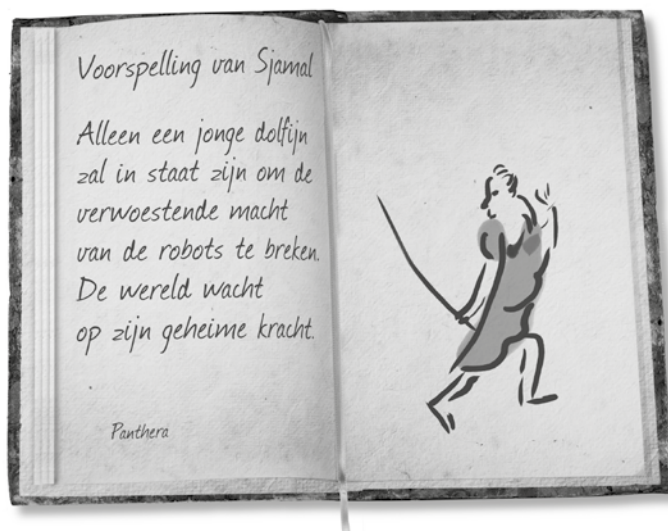 Voorspelling van Sjamal
Alleen een jonge dolfijn
zal in staat zijn om de
verwoestende macht
van de robots te breken.
De wereld wacht
op zijn geheime kracht.
Panthera